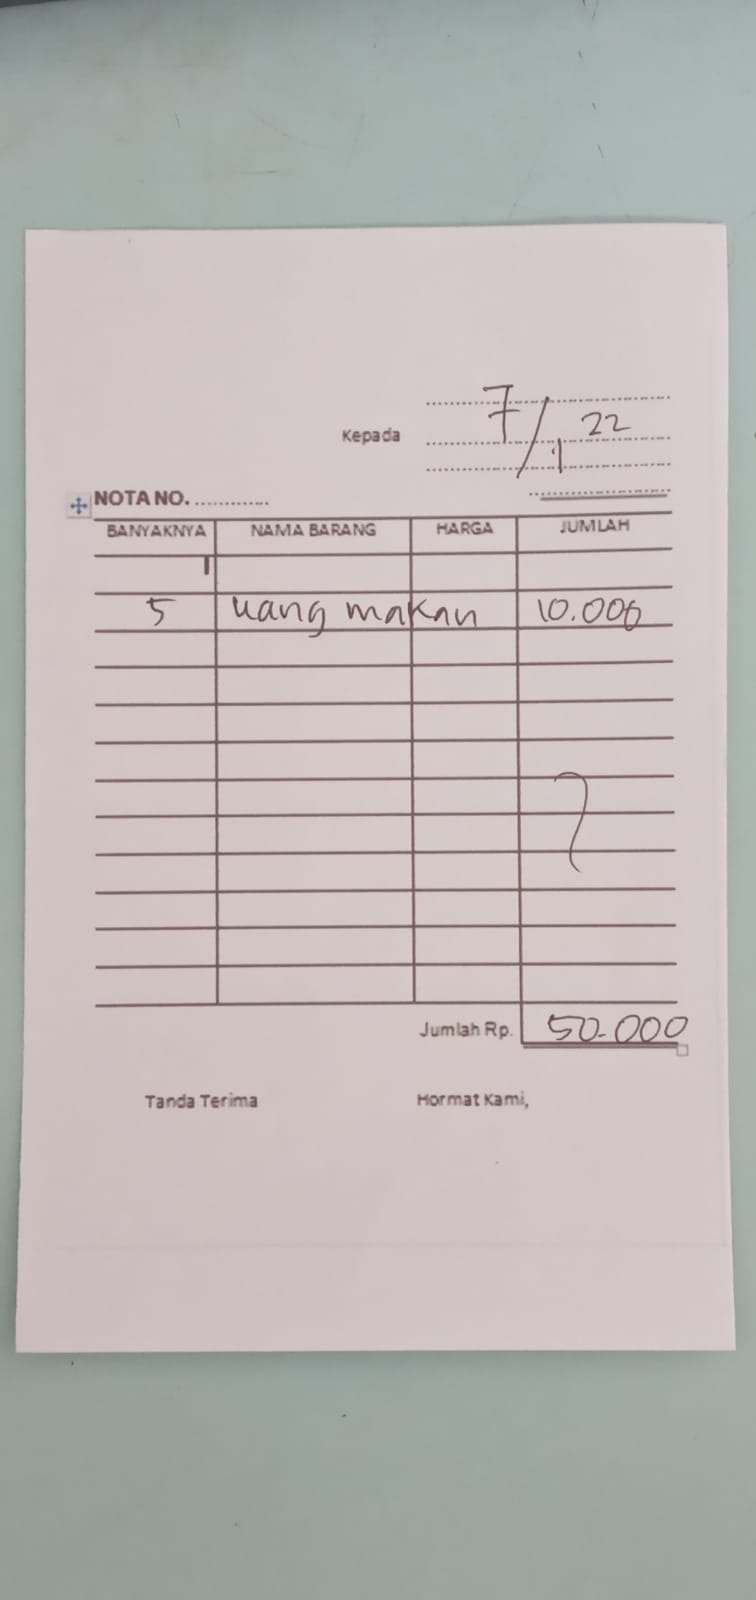 7/1 22
Kepada
NOTA NO. .............
BANYAKNYA NAMA BARANG HARGA JUMLAH
5 uang makan 10.000
Jumlah Rp. 50.000
Tanda Terima Hormat Kami,